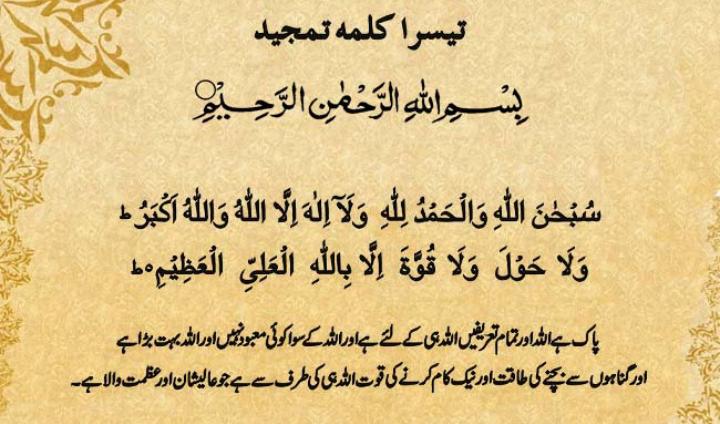 تیسرا کلمہ تمجید
بِسْمِ اللهِ الرَّحْمٰنِ الرَّحِيْمِ۝
سُبْحٰنَ اللهِ وَالْحَمْدُ لِلّٰهِ وَلَآ اِلٰهَ اِلَّا اللهُ وَاللهُ اَكْبَرُ ؕ
وَلَا حَوْلَ وَلَا قُوَّةَ اِلَّا بِاللهِ الْعَلِىِّ الْعَظِيْمِ ؕ
پاک ہے اللہ اور تمام تعریفیں اللہ ہی کے لئے ہے اور اللہ کے سوا کوئی معبود نہیں اور اللہ بہت بڑا ہے
اور گناہوں سے بچنے کی طاقت اور نیک کام کرنے کی قوت اللہ ہی کی طرف سے ہے جو عالیشان اور عظمت والا ہے۔